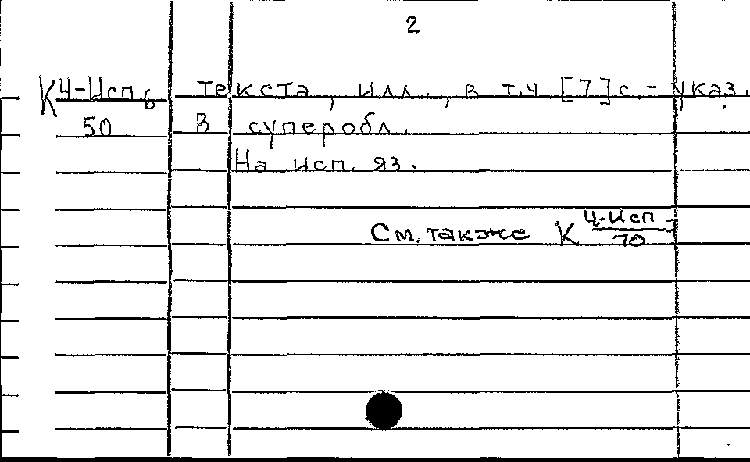 2
К Ч-Исп текста, илл., в т.ч [7] с. - указ.
50 В суперобл.
На исп. яз.
См. также К Ч-Исп
70